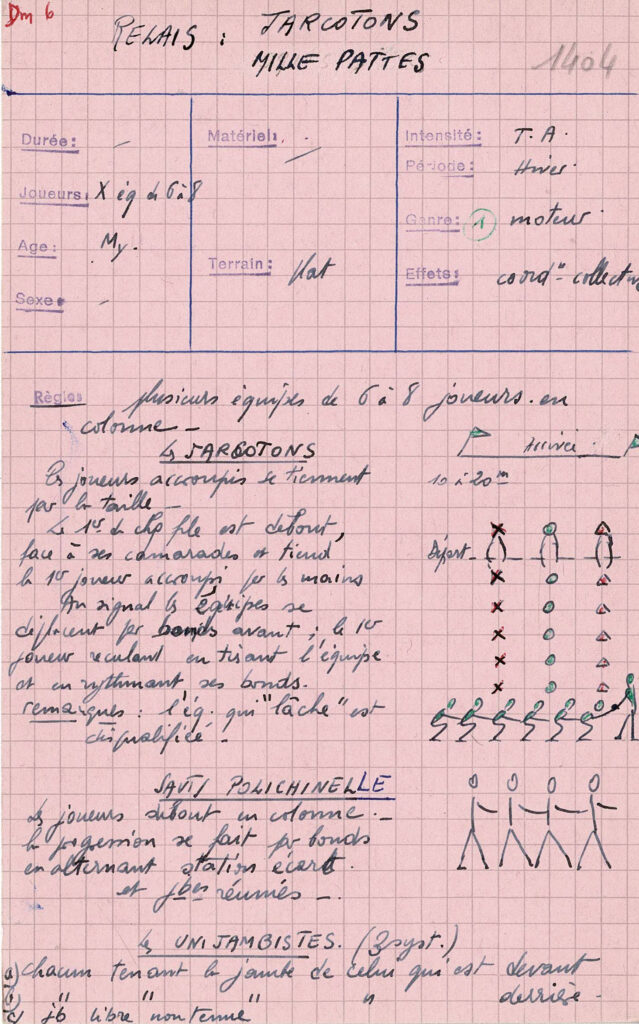 Dm 6
RELAIS : JARCOTONS
MILLE PATTES
1404
Durée : -
Joueurs : X éq de 6 à 8
Age : My.
Sexe : -
Matériel : -
Terrain : plat
Intensité : T.A.
Période : Hiver
Genre : 1 moteur
Effets : coord° collective
Règles plusieurs équipes de 6 à 8 joueurs en
colonne -
Les JARCOTONS
Les joueurs accroupis se tiennent
par la taille -
Le 1er de chq file est debout,
face à ses camarades et tient
le 1er joueur accroupi par les mains
Au signal les équipes se
déplacent par bonds avant ; le 1er
joueur reculant en tirant l'équipe
et en rythmant ses bonds.
remarques : l'éq. qui "lâche" est
disqualifiée -
Arrivée
10 à 20m
Départ
SAUTS POLICHINELLE
Les joueurs debout en colonne -
la progression se fait par bonds
en alternant station écart
et jbes réunies -
Les UNIJAMBISTES. (3 syst.)
a) chacun tenant la jambe de celui qui est devant
b) " " " derrière
c) jb libre non tenue "